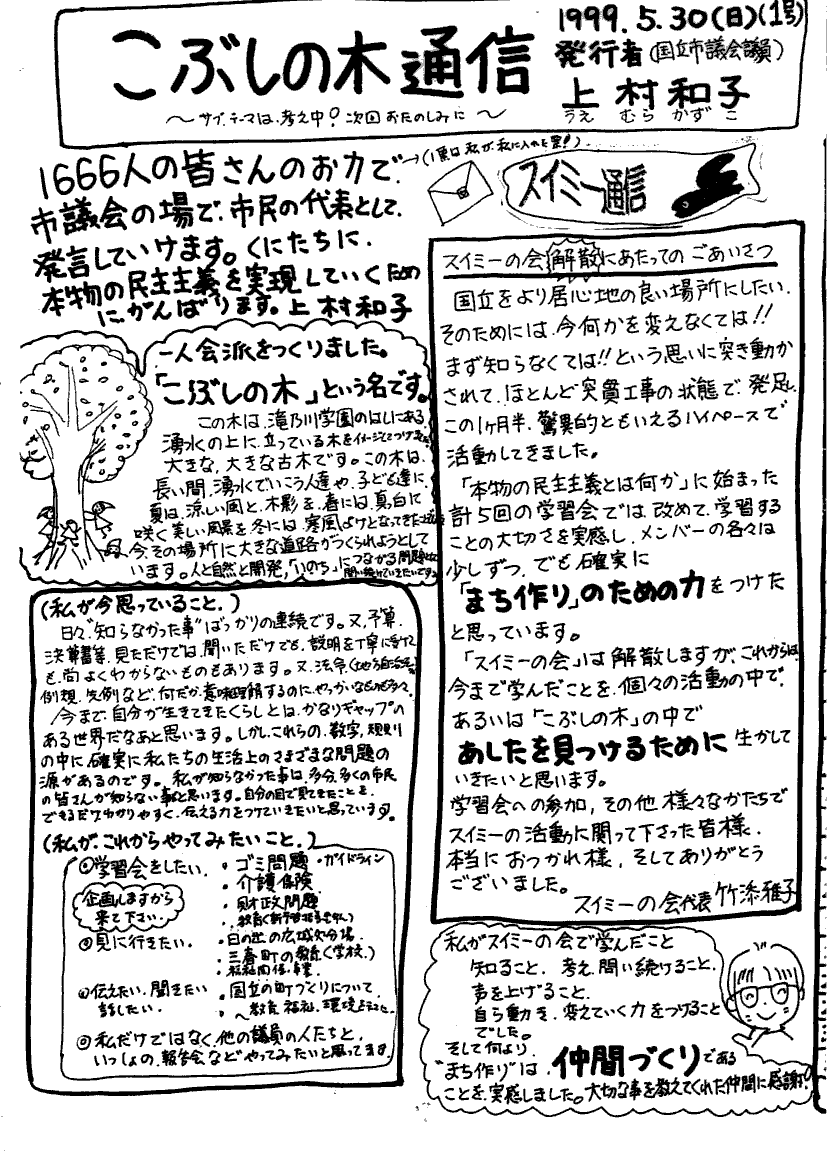 1999.5.30(日)(1号)
こぶしの木通信
発行者(国立市議会議員)
上村和子
うえ むら かず こ
～サブ、テーマは、考え中?次回おたのしみに～
1666人の皆さんのお力で、
→(1票は私が、私に入れた票!)
市議会の場で、市民の代表として、
発言していけます。くにたちに、
本物の民主主義を実現していくため
に、がんばります。上村和子
一人会派をつくりました。
「こぶしの木」という名です。
この木は、滝乃川学園のはしにある
湧水の上に、立っている木をイメージしてつけました
大きな、大きな古木です。この木は、
長い間、湧水でいこう人達や、子ども達に、
夏は涼しい風と、木影を、春には、真白に
咲く美しい風景を、冬には、寒風よけとなってきた
今その場所に大きな道路がつくられようとして
います。人と自然と開発、「いのち」につながる問題
問い続けていきたいです。
(私が今思っていること。)
日々“知らなかった事”ばっかりの連続です。又、予算、
決算書等、見ただけでは、聞いただけでも、説明を丁寧に受けて
も、尚よくわからないものもあります。又、法令、(地方自治法)
例規、先例など、何だか、意味理解するのに、やっかいなものも多々。
今まで、自分が生きてきたくらしとは、かなりギャップの
ある世界だなあと思います。しかし、これらの、数字、規則
の中に、確実に私たちの生活上のさまざまな問題の
源があるのです。私が知らなかった事は、多分、多くの市民
の皆さんが知らない事と思います。自分の目で見てきたことを、
できるだけわかりやすく、伝える力をつけていきたいと思っています。
(私が、これからやってみたいこと。)
◎学習会をしたい。
企画しますから
来て下さい。
・ゴミ問題 ・ガイドライン
・介護保険
・財政問題
・教育(新学習指導要領)
◎見に行きたい。
・日の出の広域処分場
・三春町の教育(学校)
・福祉関係、事業
◎伝えたい、聞きたい
話したい。
・国立の町づくりについて
～教育、福祉、環境
◎私だけではなく、他の議員の人たちと、
いっしょの、報告会などやってみたいと思ってます
スイミー通信
スイミーの会解散にあたってのごあいさつ
国立をより居心地の良い場所にしたい、
そのためには、今何かを変えなくては!!
まず知らなくては!!という思いに突き動か
されて、ほとんど突貫工事の状態で、発足し、
この1ヶ月半、驚異的ともいえるハイペースで
活動してきました。
「本物の民主主義とは何か」に始まった
計5回の学習会では、改めて、学習する
ことの大切さを実感し、メンバーの各々は
少しずつ、でも確実に
「まち作り」のための力をつけた
と思っています。
「スイミーの会」は解散しますが、これからは、
今まで学んだことを、個々の活動の中で、
あるいは「こぶしの木」の中で
あしたを見つけるために生かして
いきたいと思います。
学習会への参加、その他様々なかたちで
スイミーの活動に関って下さった皆様、
本当におつかれ様、そしてありがとう
ございました。
スイミーの会代表 竹添雅子
私がスイミーの会で学んだこと
知ること、考え、問い続けること、
声を上げること、
自ら動き、変えていく力をつけること
でした。
そして何より、
“まち作り”は、仲間づくりである
ことを、実感しました。大切な事を教えてくれた仲間に感謝!!